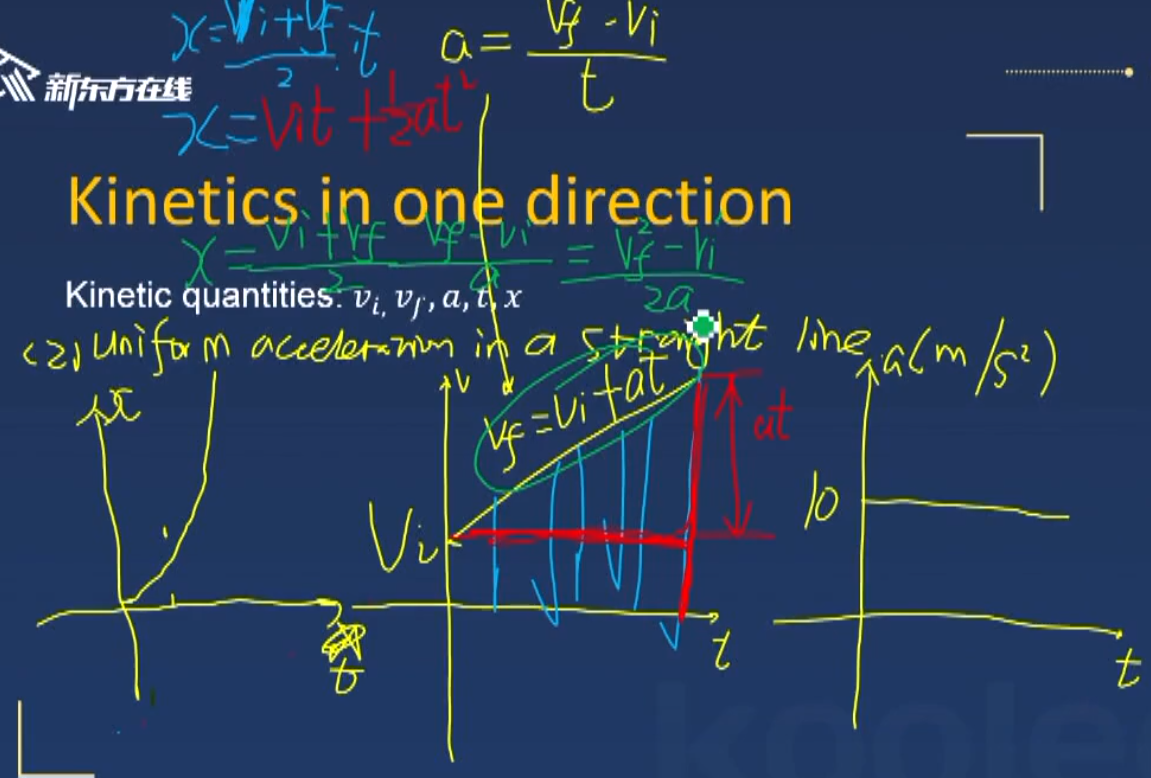 x = (vi + vf)/2 · t
a = (vf - vi)/t
新东方在线
x = Vit + ½at²
Kinetics in one direction
x = (vi + vf)/2 (vf - vi)/a = (vf² - vi²)/2a
Kinetic quantities: vi, vf, a, t, x
(2) Uniform acceleration in a straight line
x
v
vf = vi + at
a(m/s²)
at
10
Vi
t
t
t
koolea